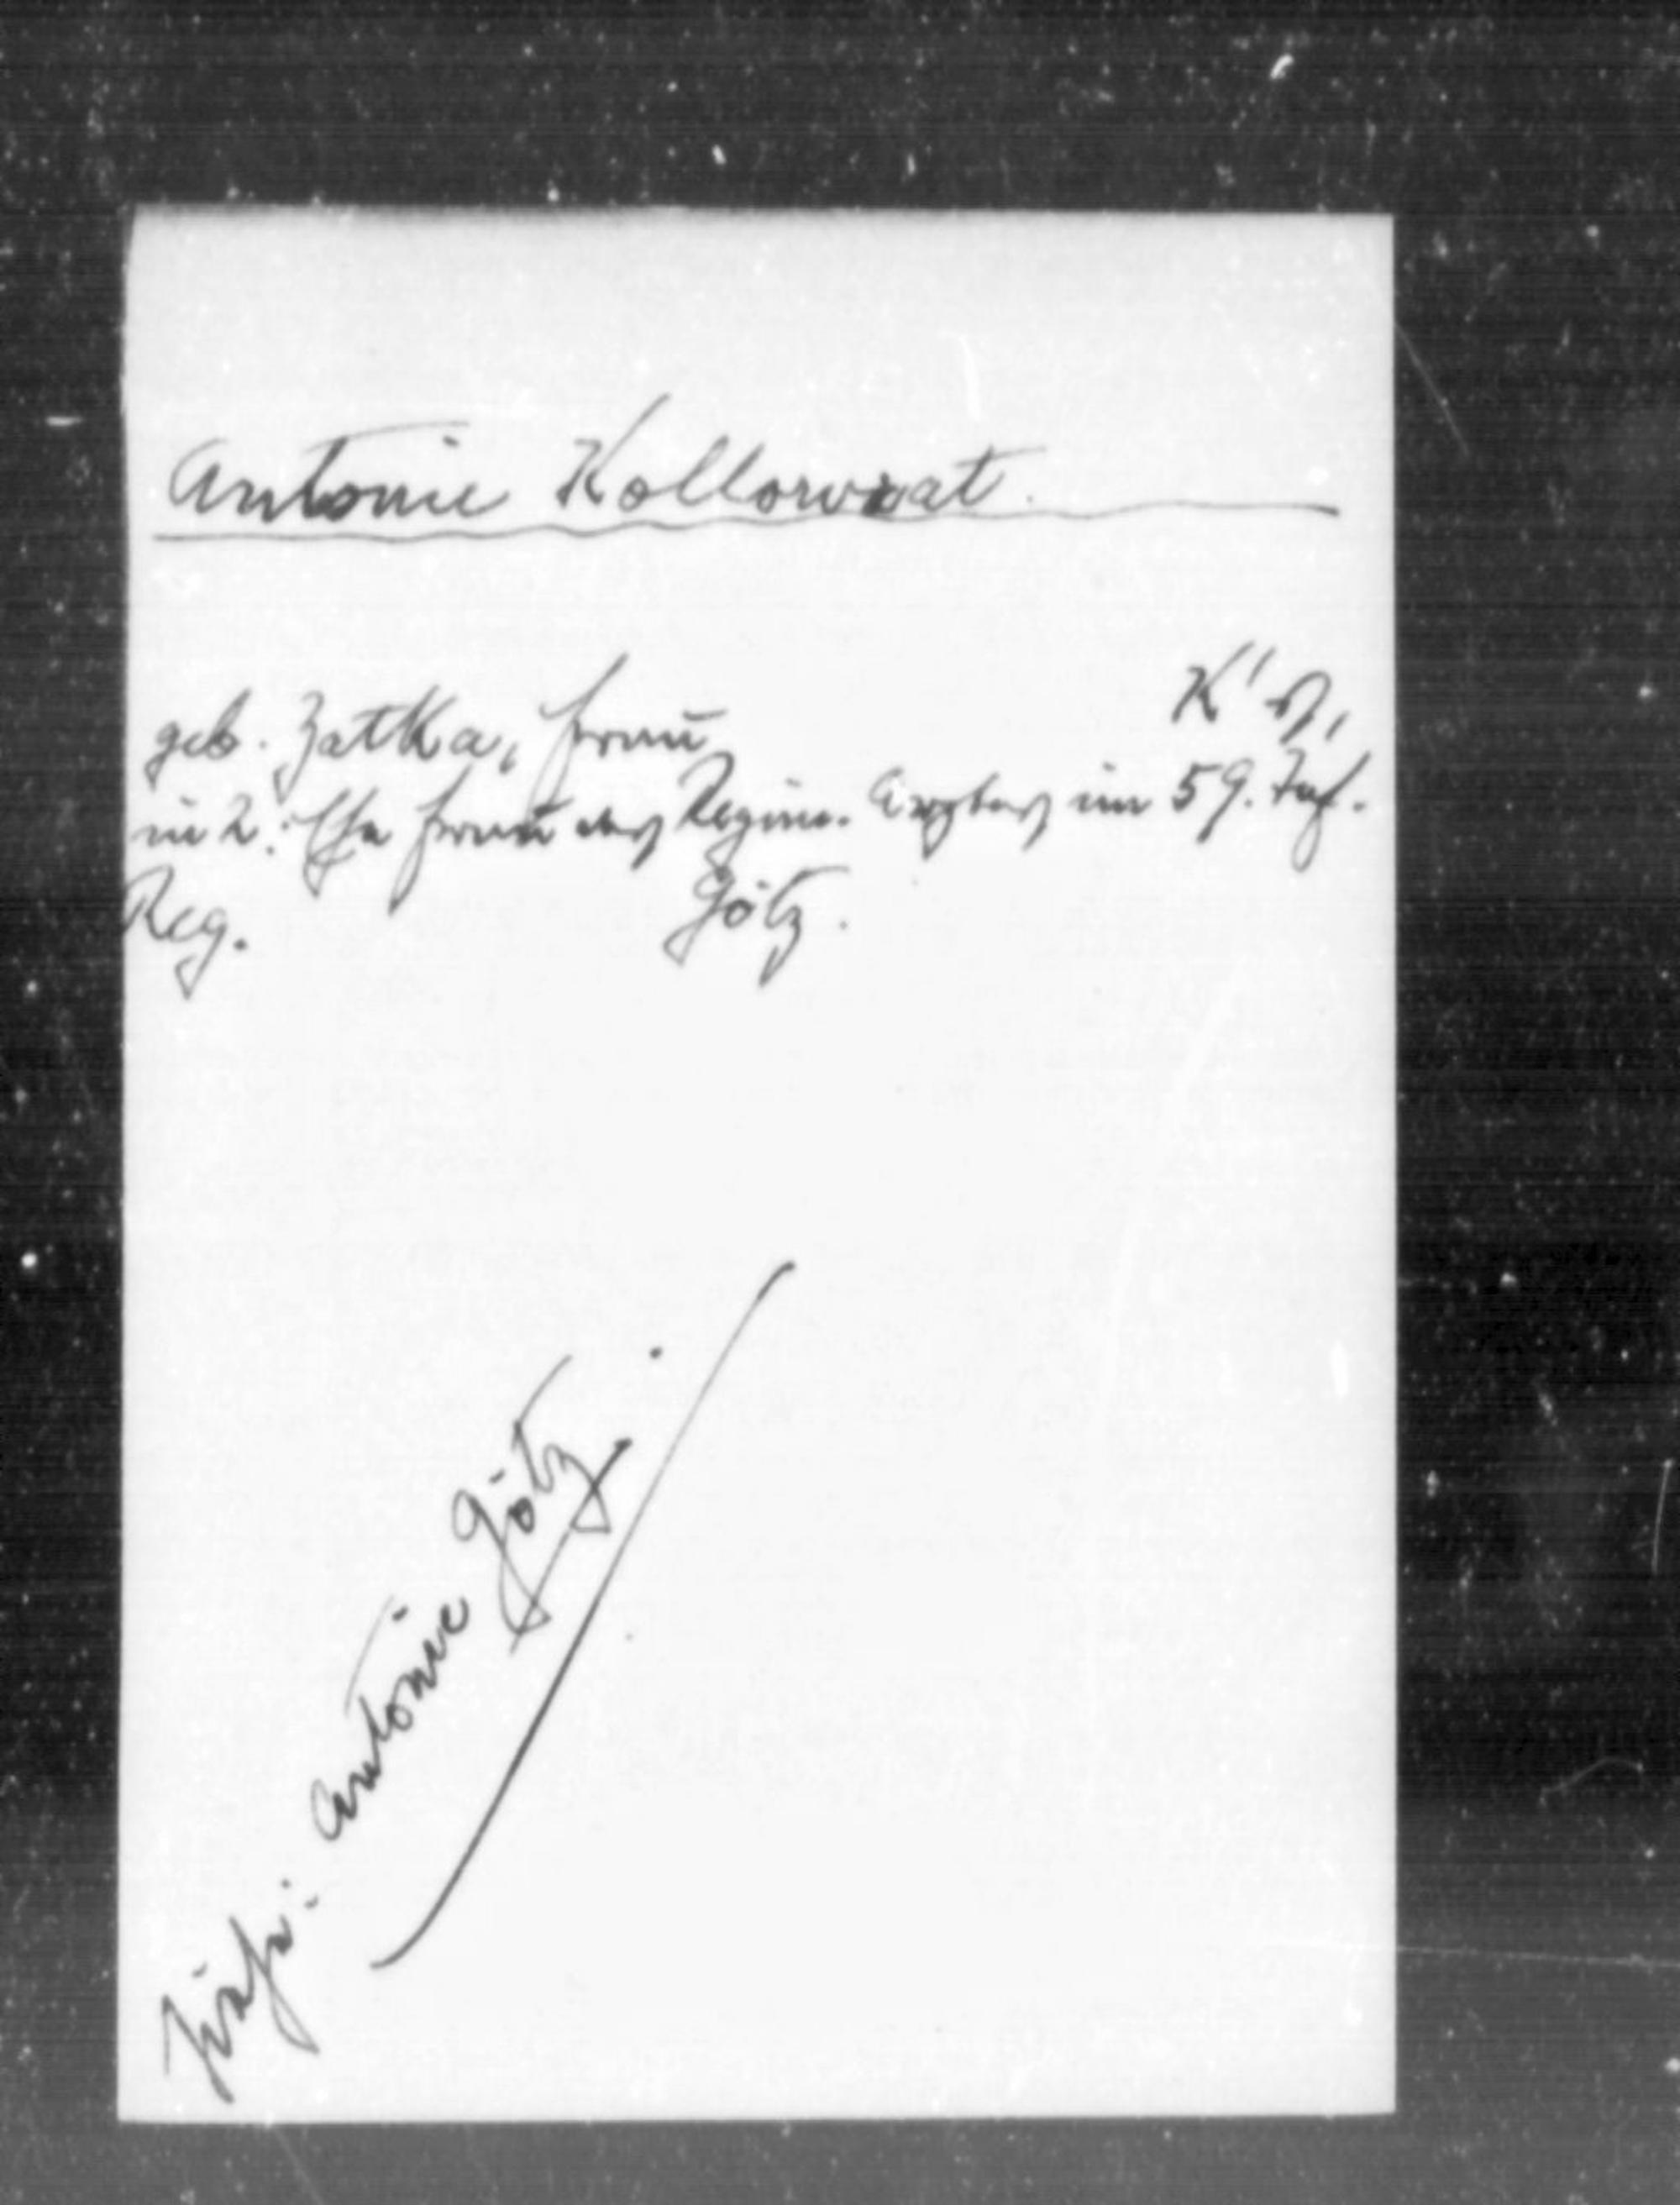 Antonie Kollowrat.
geb. Zatka, Frau K's,
in 2. Ehe Frau des Regim. Arztes im 59. Inf.
Reg. Götz.
siehe: Antonie Götz.